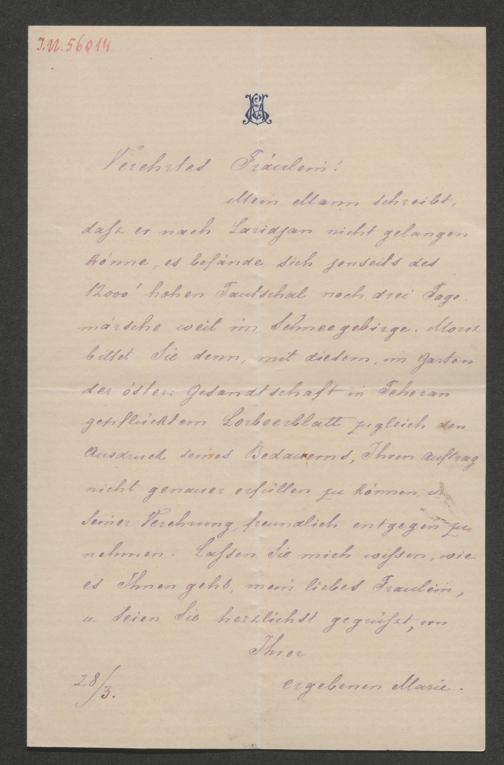 I.N. 56014
Verehrtes Fräulein!
Mein Mann schreibt,
daß er nach Laridjan nicht gelangen
könne, es befände sich jenseits des
12000' hohen Tautschal noch drei Tage
märsche weit im Schneegebirge. Moriz
bittet Sie denn, mit diesem, im Garten
der österr: Gesandtschaft in Teheran
gepflücktem Lorbeerblatt zugleich den
Ausdruck seines Bedauerns, Ihren Auftrag
nicht genauer erfüllen zu können, u.
seiner Verehrung freundlich entgegen zu
nehmen. Lassen Sie mich wissen, wie
es Ihnen geht, mein liebes Fräulein,
u. seien Sie herzlichst gegrüßt, von
Ihrer
ergebenen Marie.
28/3.